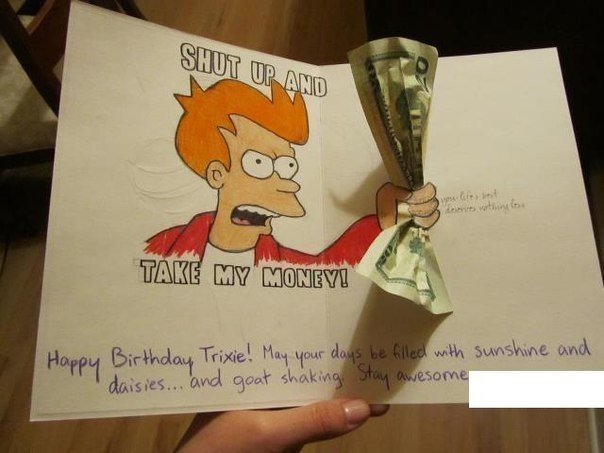 SHUT UP AND
TAKE MY MONEY!
deserves nothing less
Happy Birthday Trixie! May your days be filled with sunshine and
daisies... and goat shaking. Stay awesome